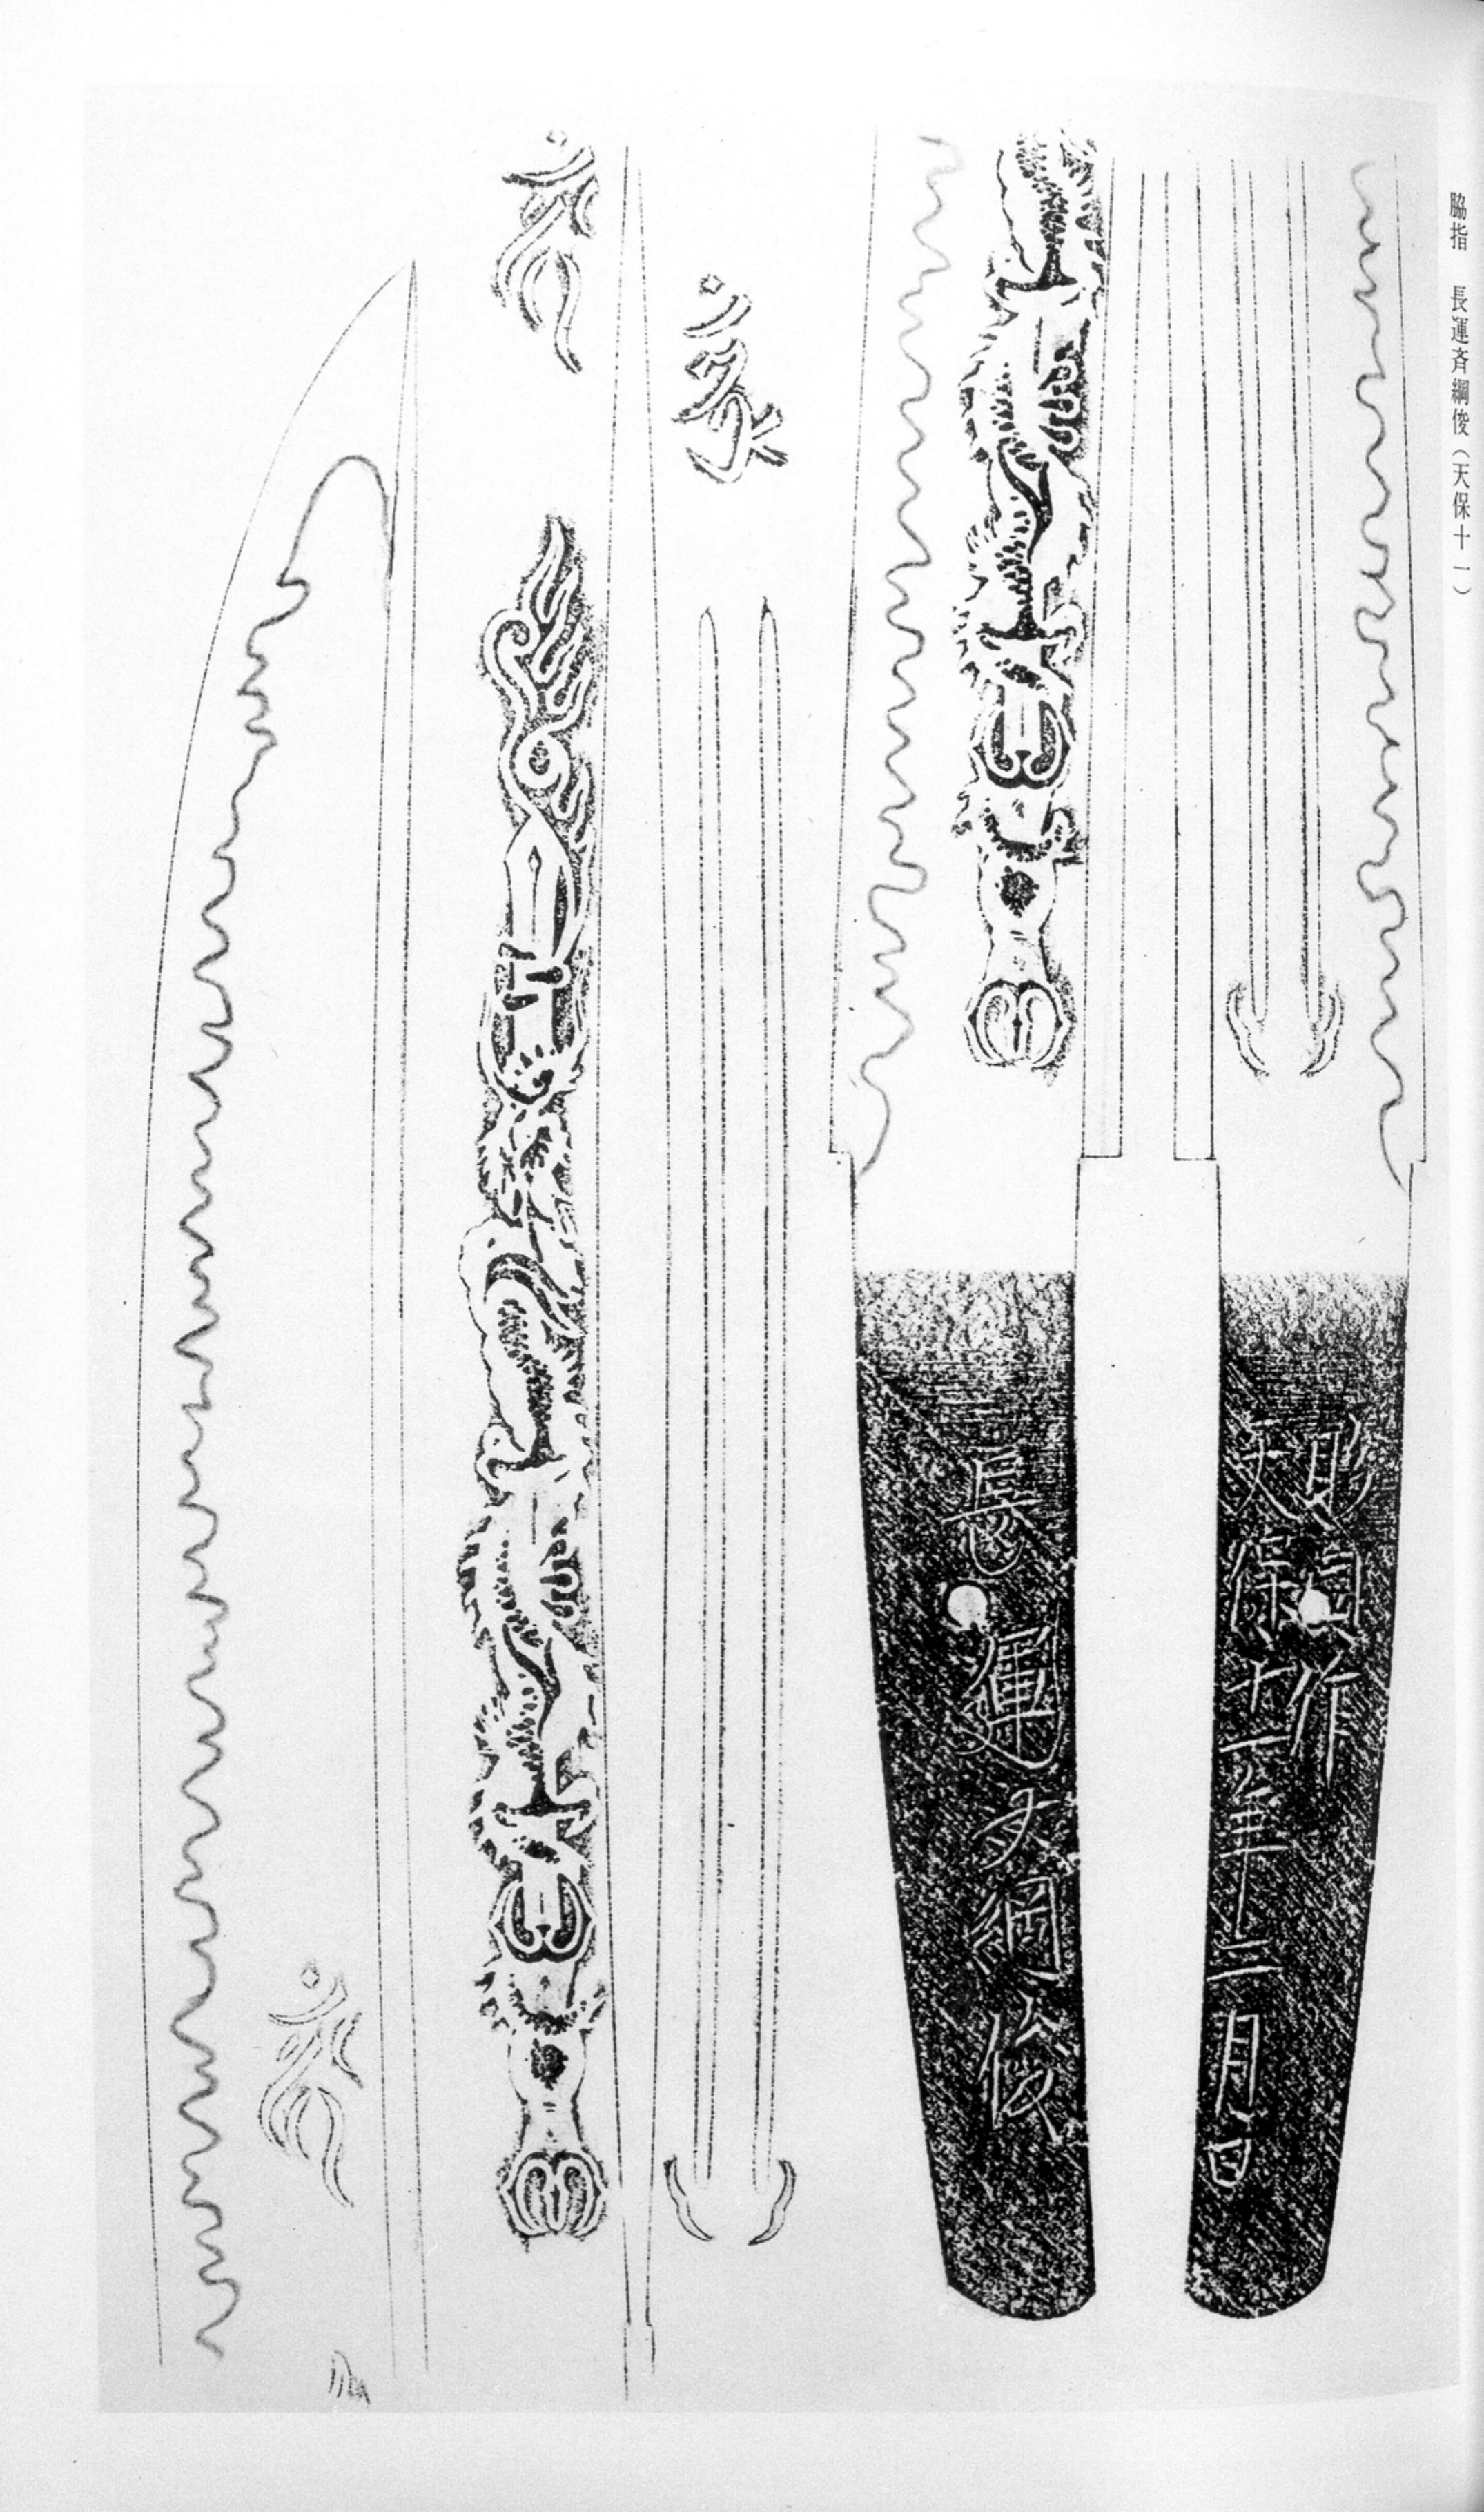 脇指 長運斉綱俊（天保十一）
彫同作
天保十一年十二月日
長運斉綱俊